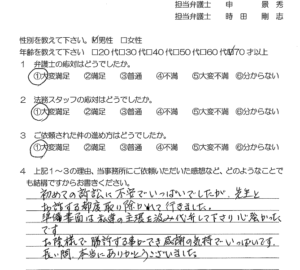 担当弁護士 申 景秀
担当弁護士 時田 剛志
性別を教えて下さい。☑男性 □女性
年齢を教えて下さい □20代□30代□40代□50代□60代☑70才以上
1 弁護士の応対はどうでしたか。
①大変満足 ②満足 ③普通 ④不満 ⑤大変不満 ⑥分からない
2 法務スタッフの応対はどうでしたか。
①大変満足 ②満足 ③普通 ④不満 ⑤大変不満 ⑥分からない
3 ご依頼された件の進め方はどうでしたか。
①大変満足 ②満足 ③普通 ④不満 ⑤大変不満 ⑥分からない
4 上記1~3の理由、当事務所にご依頼いただいた感想など、どのようなことで
も結構ですからお書きください。
初めての訴訟に不安でいっぱいでしたが、先生と
お話する都度取り除かれて行きました。
準備書面は私達の主張を汲み代弁して下さり心強かった
です
お陰様で勝訴する事ができ感謝の気持でいっぱいです。
長い間、本当にありがとうございました。